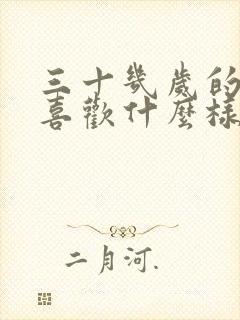 三十幾歲的
喜歡什麼樣
二月河.